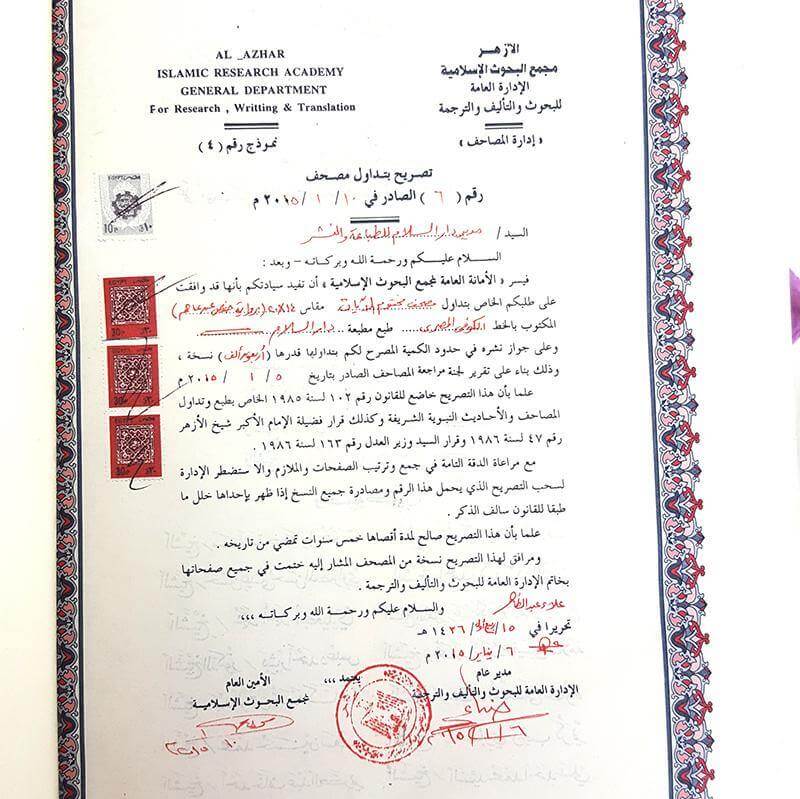 AL _AZHAR
ISLAMIC RESEARCH ACADEMY
GENERAL DEPARTMENT
For Research , Writting & Translation
الأزهر
مجمع البحوث الإسلامية
الإدارة العامة
للبحوث والتأليف والترجمة
« إدارة المصاحف »
نموذج رقم ( ٤ )
تصريح بتداول مصحف
رقم ( ٦ ) الصادر في ١٠ / ١ / ٢٠١٥ م
السيد / مدير دار السلام للطباعة والنشر
السلام عليكم ورحمة الله وبركاته – وبعد :
فيسر « الأمانة العامة لمجمع البحوث الإسلامية » أن تفيد سيادتكم بأنها قد وافقت
على طلبكم الخاص بتداول مصحف مختوم الآيات مقاس ١٤×٢٠ (برواية حفص عن عاصم)
المكتوب بالخط الكوفى المصرى ..... طبع مطبعة .. دار السلام
وعلى جواز نشره في حدود الكمية المصرح لكم بتداولها قدرها ( أربعون ألف ) نسخة ،
وذلك بناء على تقرير لجنة مراجعة المصاحف الصادر بتاريخ ٥ / ١ / ٢٠١٥ م
علما بأن هذا التصريح خاضع للقانون رقم ١٠٢ لسنة ١٩٨٥ الخاص بطبع وتداول
المصاحف والأحاديث النبوية الشريفة وكذلك قرار فضيلة الإمام الأكبر شيخ الأزهر
رقم ٤٧ لسنة ١٩٨٦ وقرار السيد وزير العدل رقم ١٦٣ لسنة ١٩٨٦ .
مع مراعاة الدقة التامة في جمع وترتيب الصفحات والملازم والا ستضطر الإدارة
لسحب التصريح الذي يحمل هذا الرقم ومصادرة جميع النسخ إذا ظهر بإحداها خلل ما
طبقا للقانون سالف الذكر .
علما بأن هذا التصريح صالح لمدة أقصاها خمس سنوات تمضي من تاريخه .
ومرافق لهذا التصريح نسخة من المصحف المشار إليه ختمت في جميع صفحاتها
بخاتم الإدارة العامة للبحوث والتأليف والترجمة .
والسلام عليكم ورحمة الله وبركاته ،،،
علاء عبد الظاهر
تحريرا في ١٥ / ربيع أول / ١٤٣٦ هـ
٦ / يناير / ٢٠١٥ م
مدير عام
الإدارة العامة للبحوث والتأليف والترجمة
يعتمد ،،،
الأمين العام
لمجمع البحوث الإسلامية